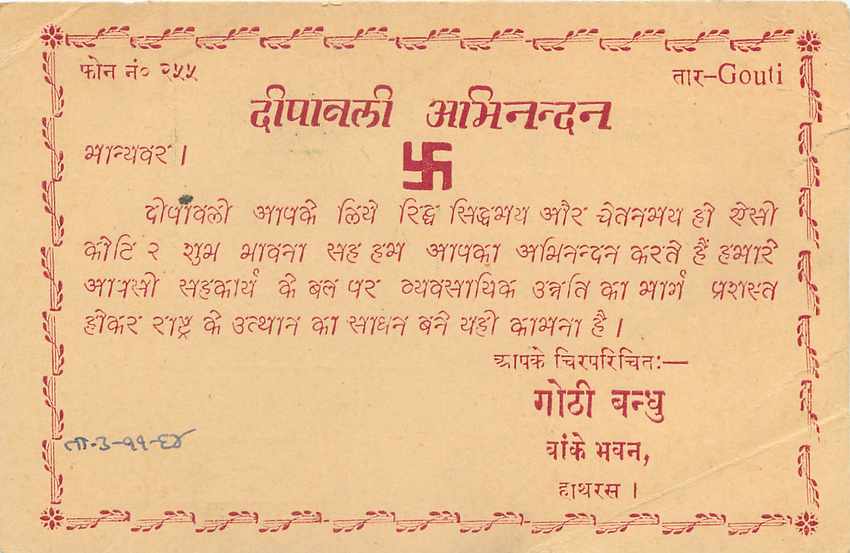 फोन नं० २५५
तार-Gouti
दीपावली अभिनन्दन
मान्यवर ।
दीपावली आपके लिये रिद्ध सिद्धमय और चेतनमय हो ऐसी
कोटि २ शुभ भावना सह हम आपका अभिनन्दन करते हैं हमारे
आपसी सहकार्य के बल पर व्यवसायिक उन्नति का मार्ग प्रशस्त
होकर राष्ट्र के उत्थान का साधन बने यही कामना है ।
आपके चिरपरिचित:—
गोठी बन्धु
बांके भवन,
हाथरस ।
ता-3-११-६४